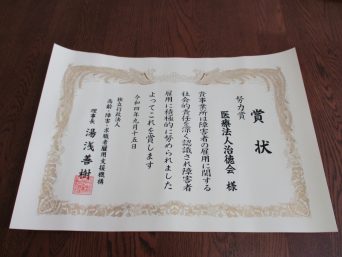 賞状
努力賞
医療法人治徳会 様
貴事業所は障害者の雇用に関する
社会的責任を深く認識され障害者
雇用に積極的に努められました
よってこれを賞します
令和四年九月十五日
独立行政法人
高齢・障害・求職者雇用支援機構
理事長 湯浅善樹